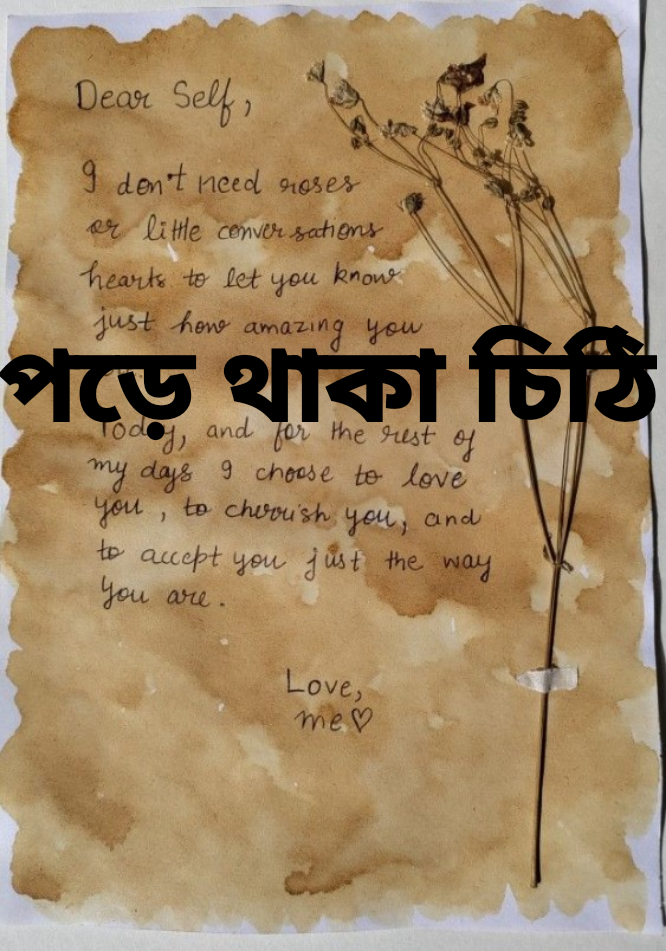 Dear Self,
I don't need roses
or little conversations
hearts to let you know
just how amazing you
পড়ে থাকা চিঠি
Today, and for the rest of
my days I choose to love
you, to cherish you, and
to accept you just the way
you are.
Love,
me♡